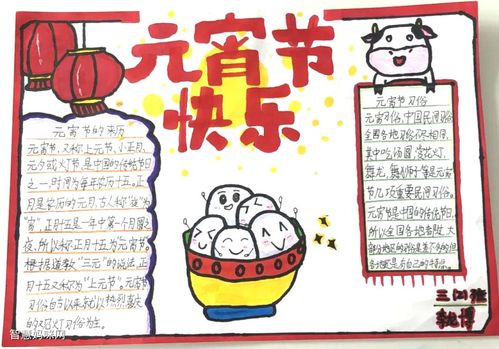 元宵节
快乐
元宵节的来历
元宵节，又称上元节，小正月、
元夕或灯节，是中国的传统节日
之一，时间为每年农历十五。正
月是农历的元月，古人称"夜"为
"宵"，正月十五是一年中第一个月圆之
夜，所以称正月十五为元宵节。
根据道教"三元"的说法，正
月十五又称为"上元节"。元宵节
习俗自古以来就以热烈喜庆
的观灯习俗为主。
元宵节习俗
元宵习俗，中国民间习俗
全国各地习俗不尽相同，
其中吃汤圆、赏花灯、
舞龙、舞狮子等是元宵
节几项重要民间习俗。
元宵节是中国的传统节日，
所以全国各地都过，大
部分地区的习俗是差不多的，但
各地还是有自己的特色。
三（2）班
智慧妈咪网